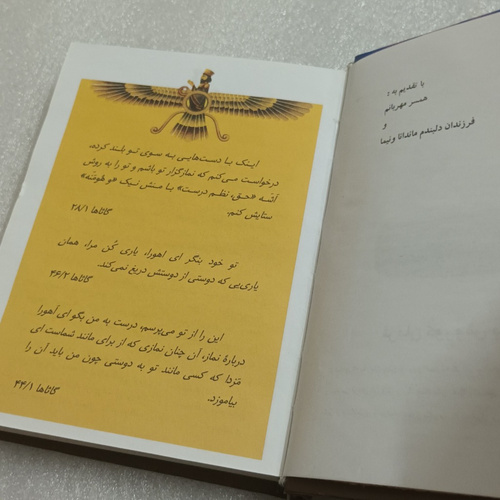 با تقدیم به :
همسر مهربانم
و
فرزندان دلبندم ماندانا و نیما
اینک با دست‌هایی به سوی تو بلند کرده،
درخواست می‌کنم که نمازگزار تو باشم و تو را به روش
آشه «حق، نظم درست» با منش نیک «وهومنه»
ستایش کنم.
گاتاها ۲۸/۱
تو خود بنگر ای اهورا، یاری کُن مرا، همان
یاری‌یی که دوستی از دوستش دریغ نمی‌کند.
گاتاها ۴۶/۲
این را از تو می‌پرسم، درست به من بگو ای اَهورا
دربارهٔ نماز، آن چنان نمازی که از برای مانند شماست ای
مَزدا که کسی مانند تو به دوستی چون من باید آن را
بیاموزد.
گاتاها ۴۴/۱